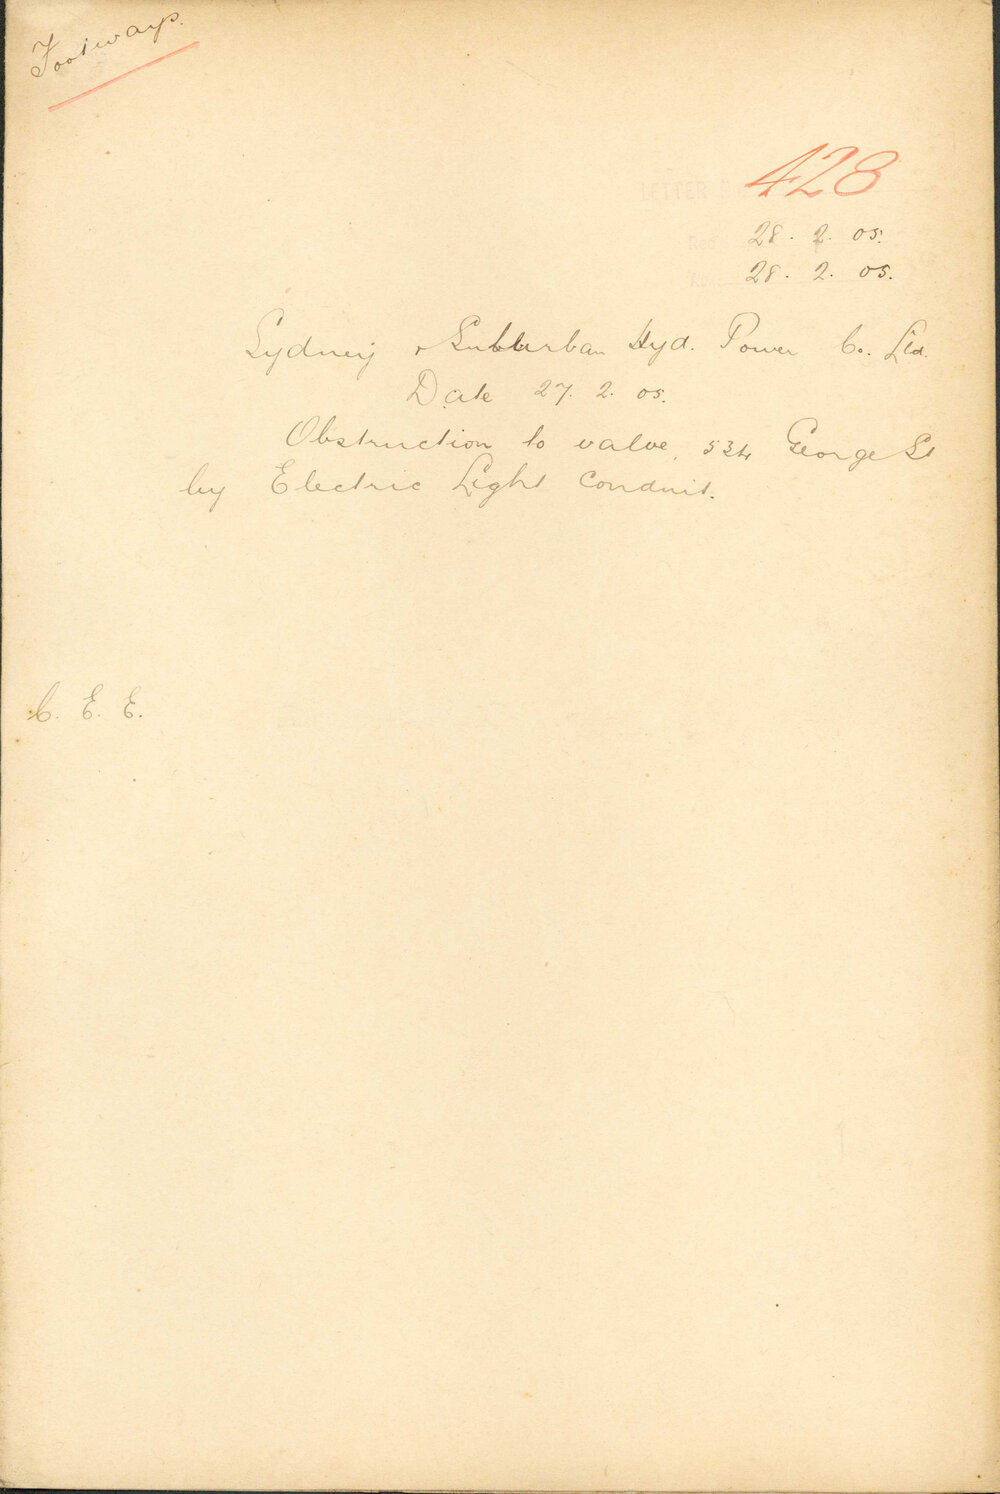 Footways.
LETTER
428
Rec 28. 2. 05.
28. 2. 05.
Sydney & Suburban Hyd. Power Co. Ltd.
Date 27. 2. 05.
Obstruction to valve, 534 George St
by Electric Light Conduit.
C. E. E.